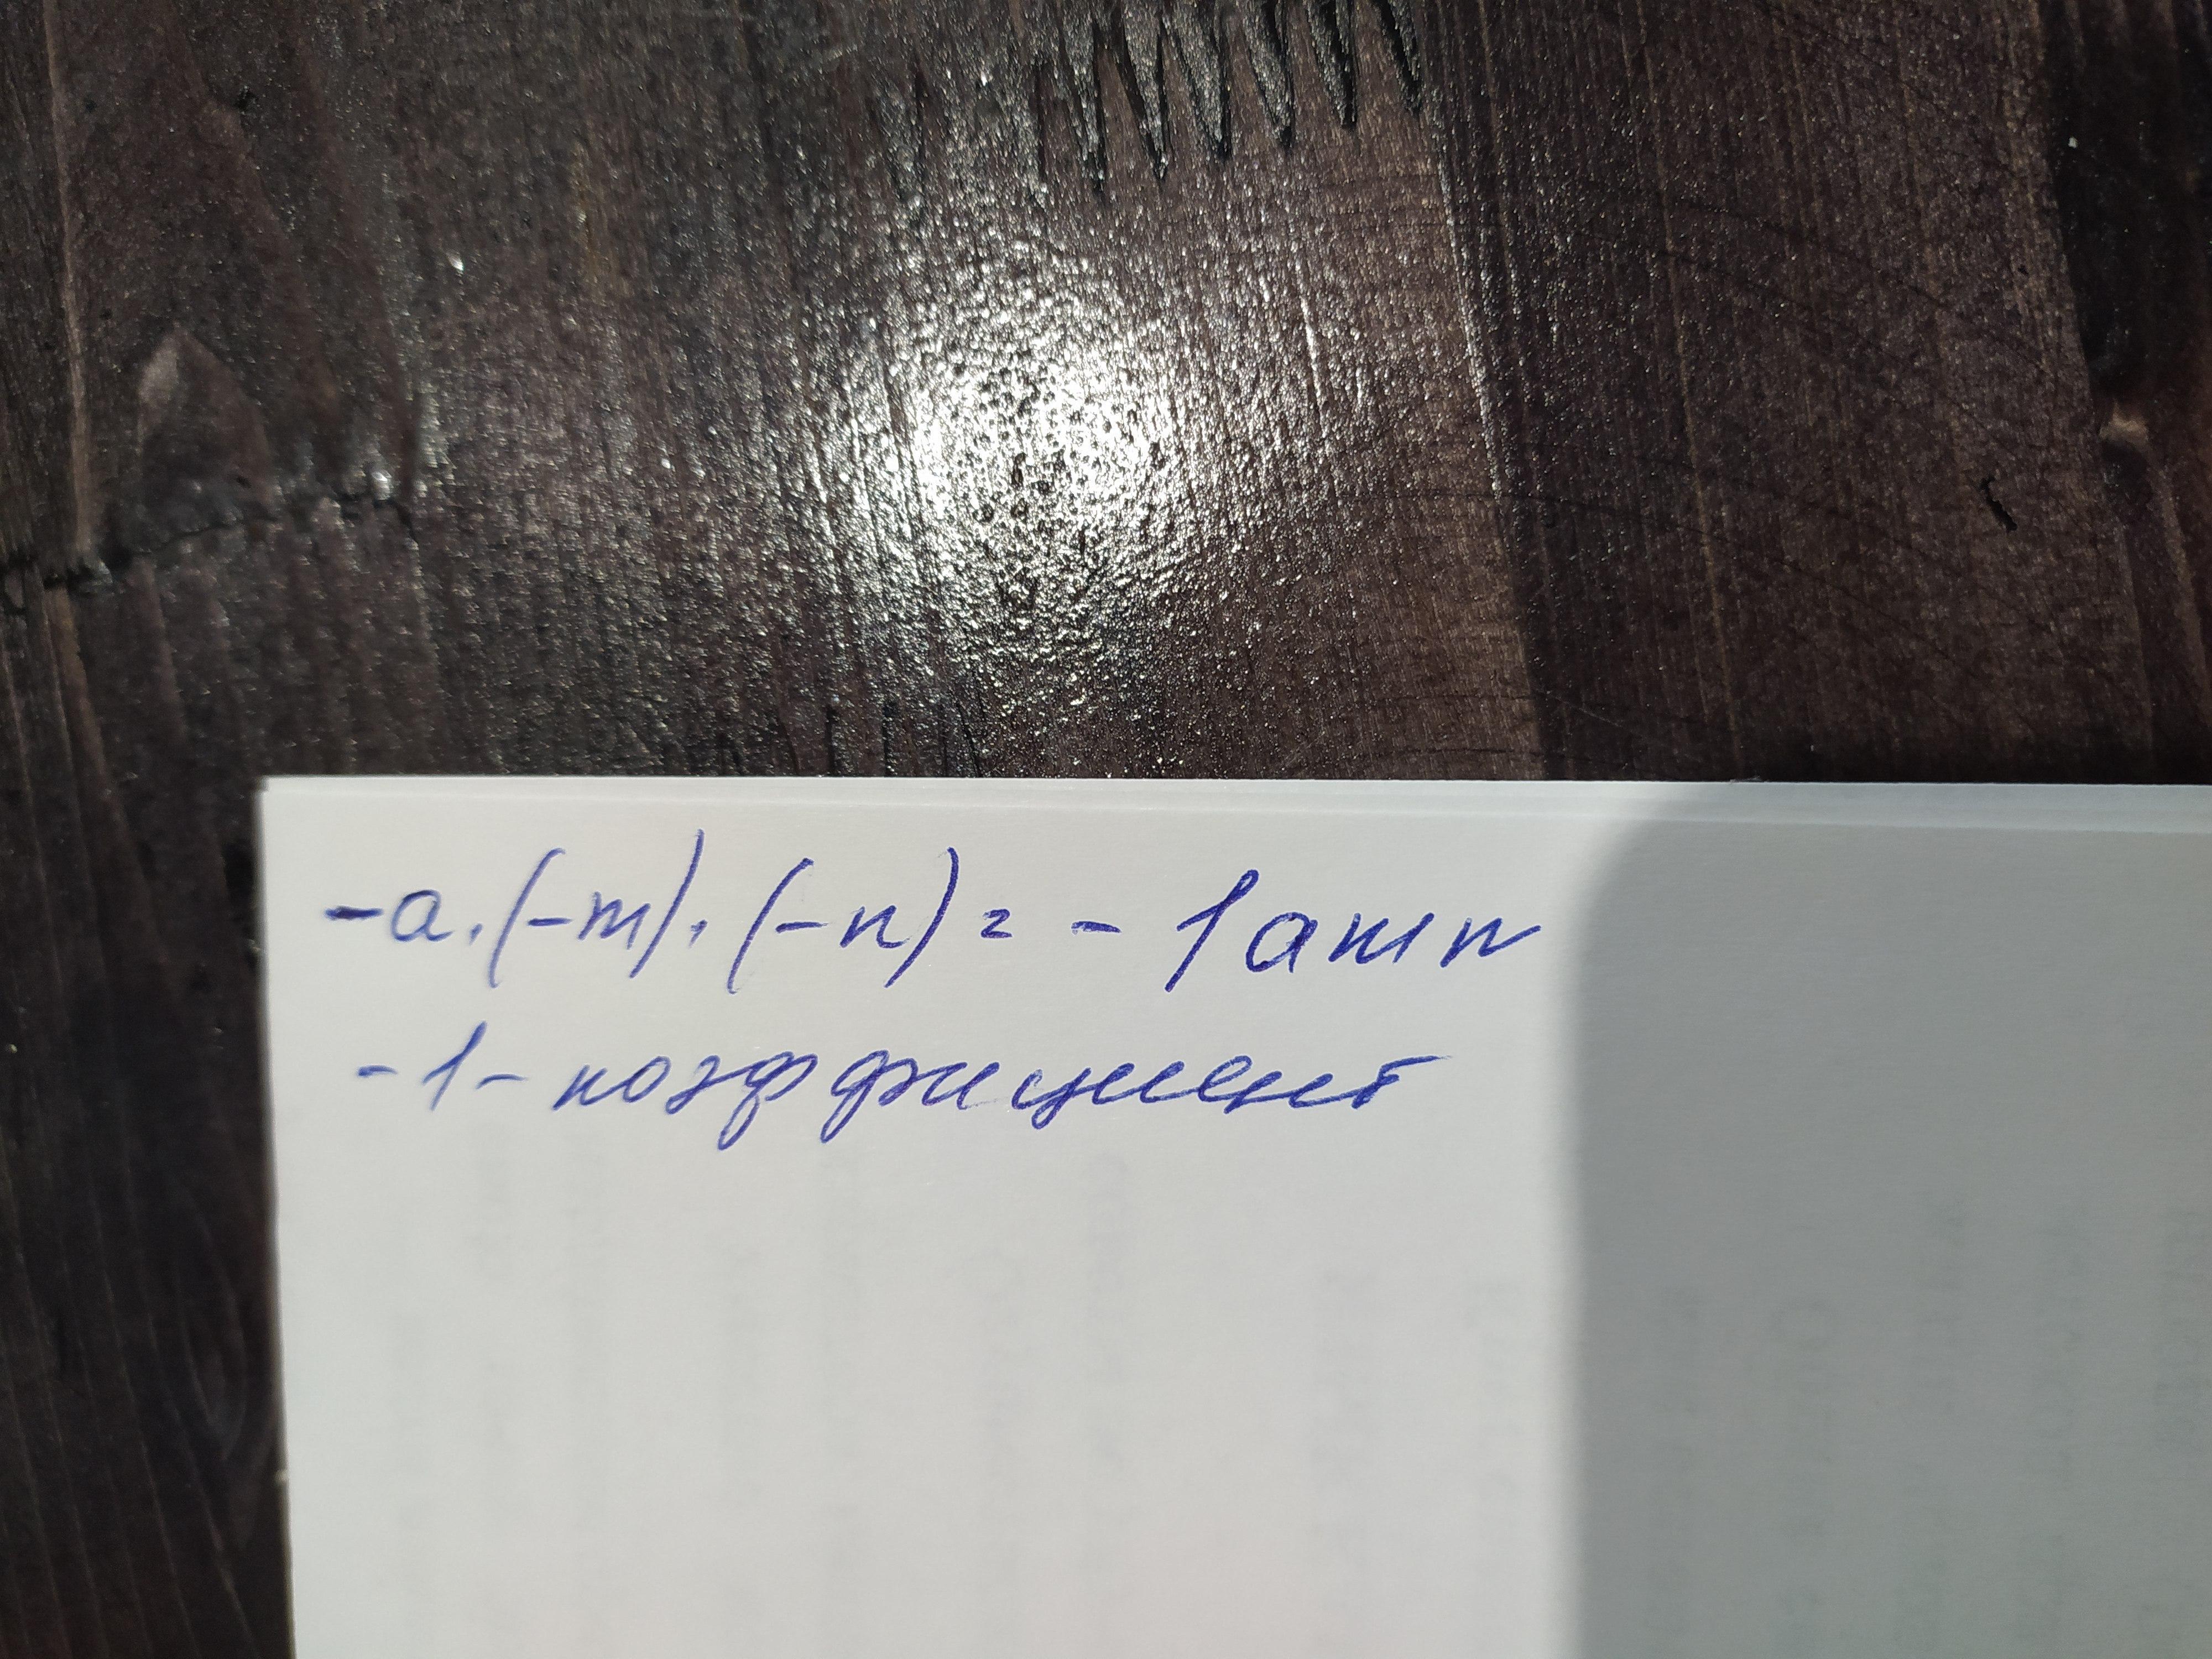 -a·(-m)·(-n)= -1amn
-1- коэффициент